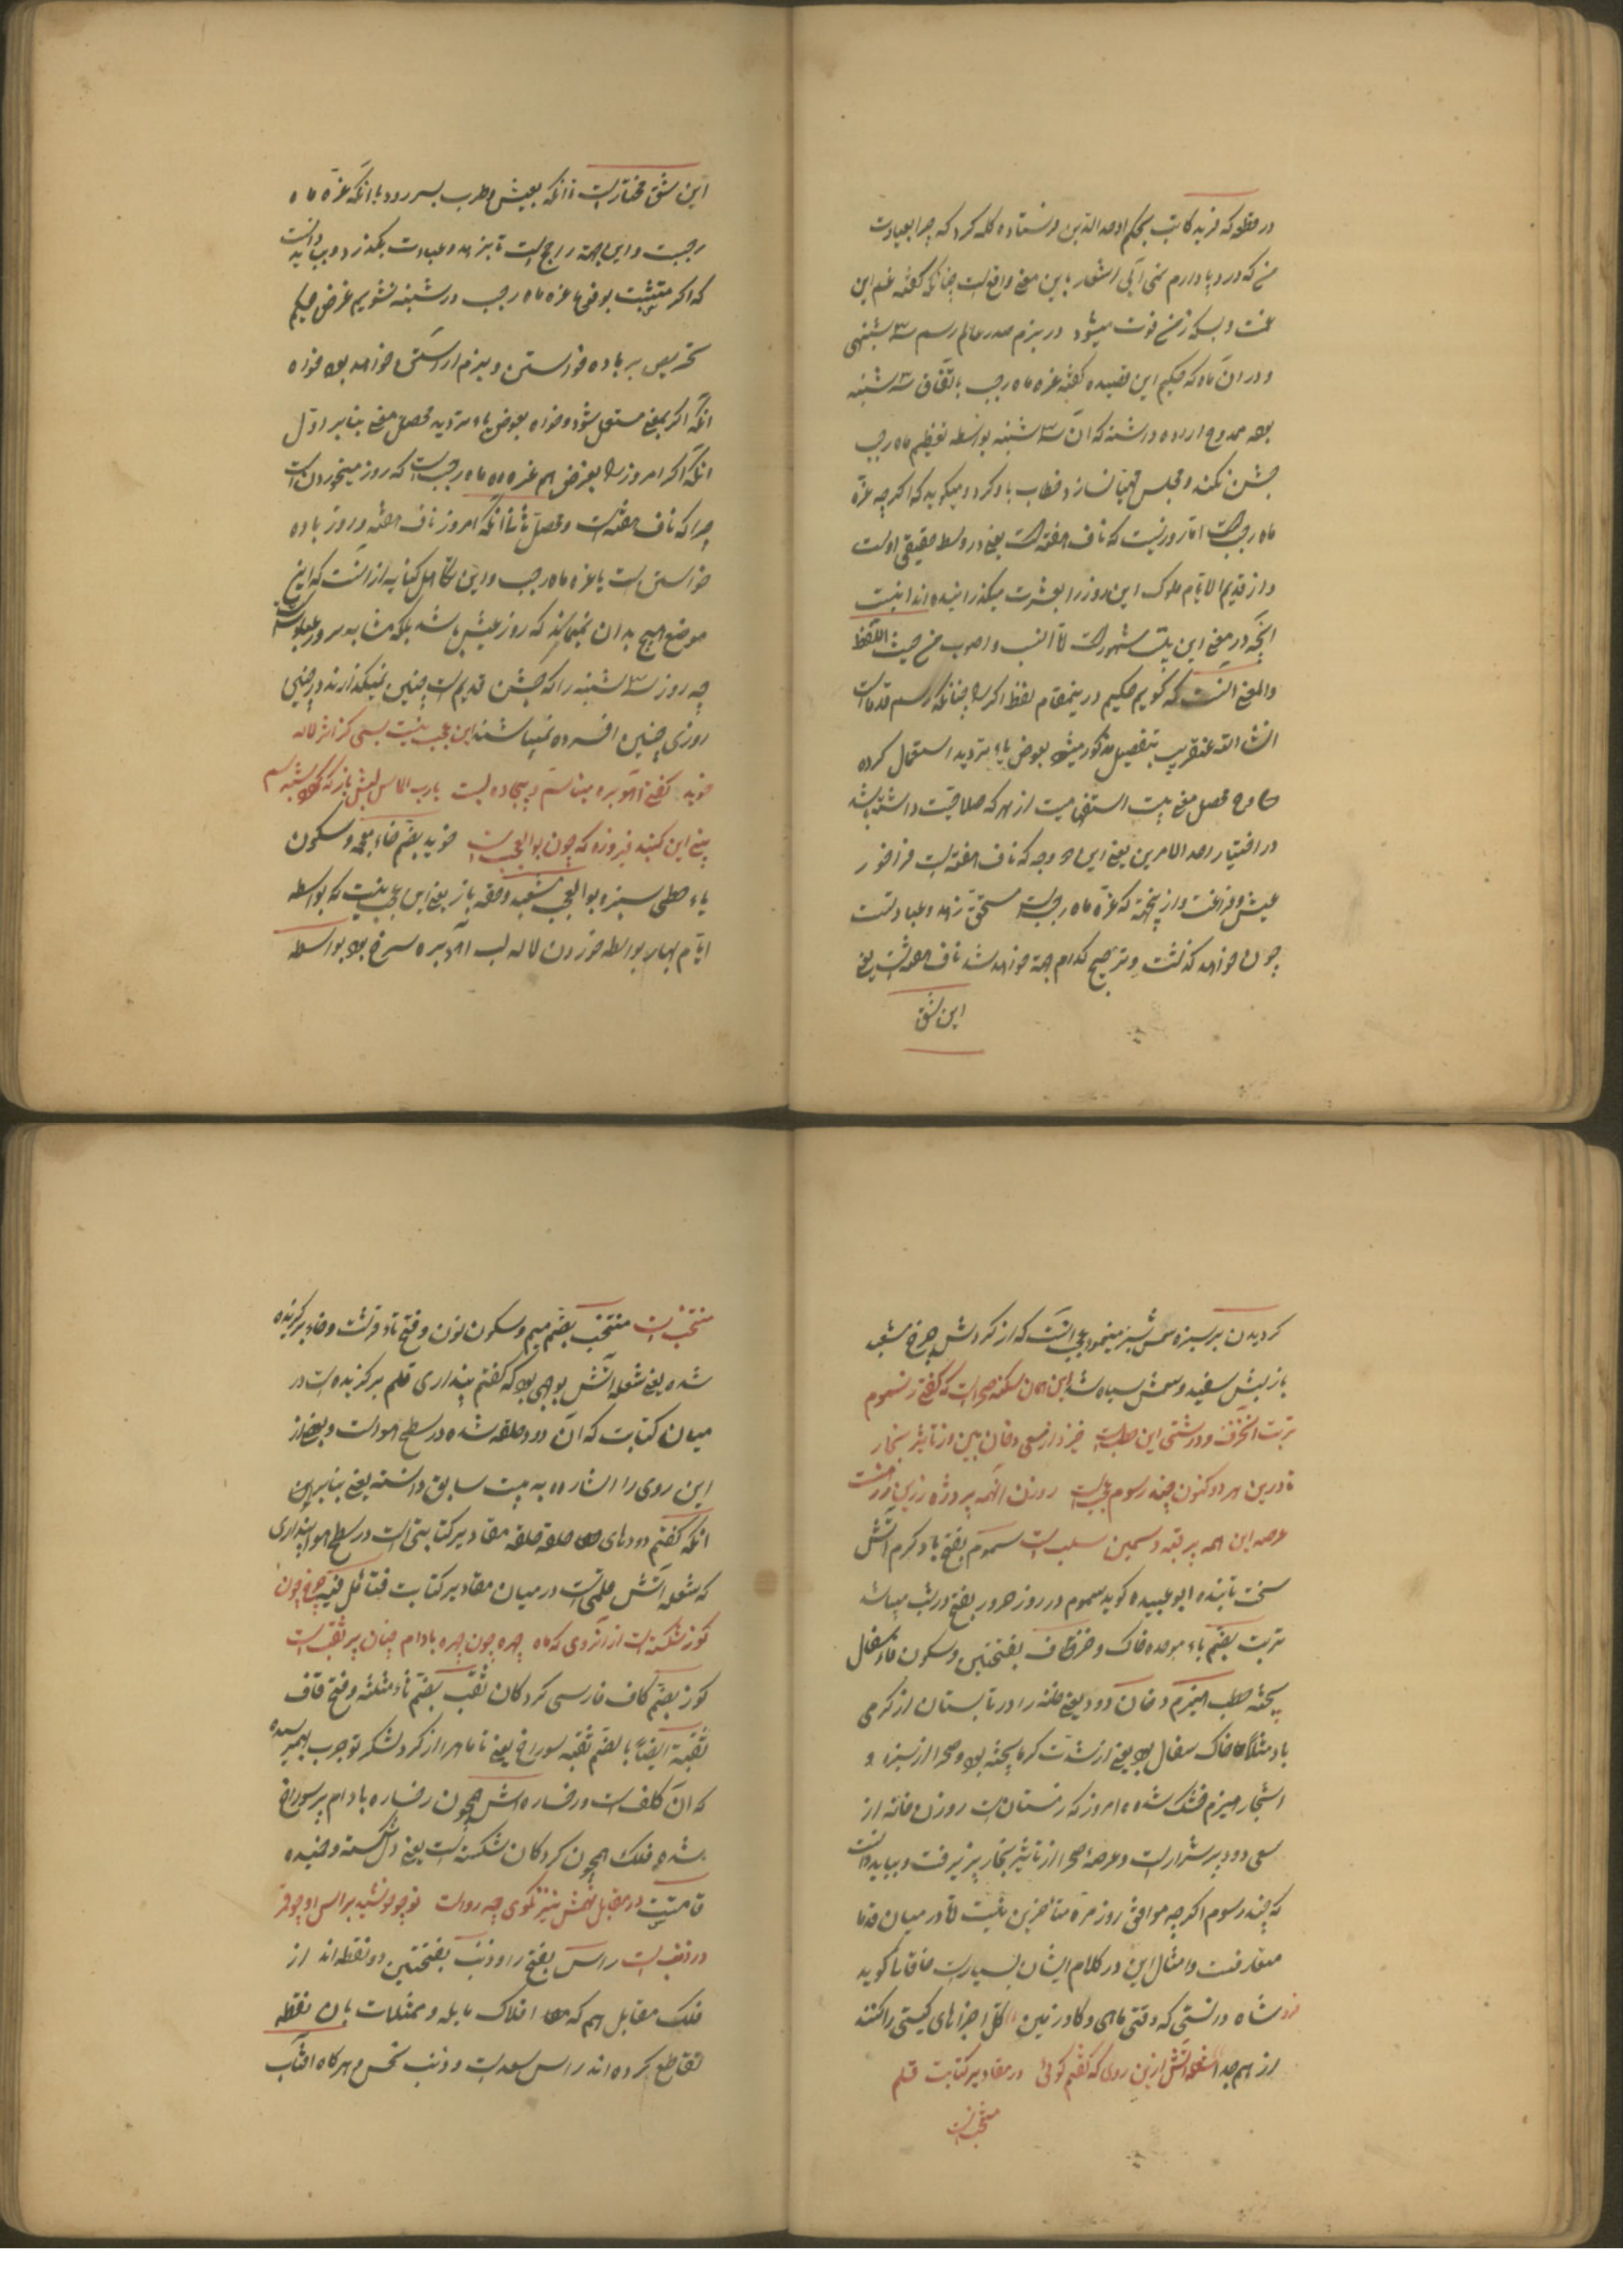 در قطعه که فرید کاتب بحکیم اوحدالدین فرستاده گله کرد که چرا بعیادت
من که درد پا دارم نمی آیی اشعار باین معنی واقعست چنانکه گفته غم این
غمست و بس که ز من فوت میشود در بزم صدر عالم رسم سه شنبهی
و در آن ماه که حکیم این قصیده گفته غره ماه رجب باتفاق سه شنبه
بوده ممدوح اراده داشته که آن سه شنبه بواسطه تعظیم ماه رجب
جشن نکند و مجلس مهیا نسازد خطاب باو کرد و میگوید که اگرچه غره
ماه رجبست اما روزیست که ناف هفته است یعنی در وسط حقیقی اوست
و از قدیم الایام ملوک این روز را بعشرت میگذرانیده اند اینست
آنچه در معنی این بیت مشهورست اما انسب و اصوب من حیث اللفظ
والمعنی آنست که گوییم حکیم درینمقام لفظ اگر را چنانکه رسم قدماست
انشاالله عنقریب بتفصیل مذکور میشود بعوض یاء تردید استعمال کرده
محصل معنی بیت استفهامیست از هر که صلاحیت داشته باشد
در اختیار احد الامرین یعنی این روز ازینوجه که ناف هفته است فراخور
عیش و فراغتست و ازینجهة که غره ماه رجبست مستحق زهد و عبادتست
چون خواهد گذشت و ترجیح کدام جهة خواهد شد ناف هفته است یعنی
این شق
این شق مختارست تا آنکه بعیش و طرب بسر رود یا آنکه غره ماه
رجبست و این جهة راجح است تا بزهد و عبادت بگذرد و بباید دانست
که اگر متشبث بوقوع غره ماه رجب در شنبه نشویم غرض حکیم
تحریص بر باده خواستن و بزم آراستن خواهد بود خواه
آنکه اگر بمعنی مستعمل شود و خواه بعوض یاء تردید محصل معنی بنابر اول
آنکه اگر امروز را بفرض هم غره ماه رجبست که روز میخوردن است
چرا که ناف هفته است و محصل ثانی آنکه امروز ناف هفته و روز باده
خواستن است یا غره ماه رجب و این تجاهل کنایه از آنست که این
موضع هیچ بدان نمیماند که روز عیش باشد بلکه مشابه بروز
چه روز سه شنبه را که جشن قدیم است چنین نمیگذارند و در چنین
روزی چنین افسرده نمیباشند این عجب نیست بسی کز اثر لاله
خوید گفتی آهو بره مینا سم و بیجاده لبست یارب الماس لبش باز که
بینی این گنبد فیروزه که چون بوالعجبست خوید بضم خاء معجمه و سکون
یاء حطی سبزه بوالعجب مشعبد و حقه باز یعنی این عجب نیست که بواسطه
ایام بهار بواسطه خوردن لاله لب آهو بره سرخ بود بواسطه
گردیدن بر سبزه سمش سبز مینمود عجب آنست که از گردش چرخ مشعبد
باز لبش سفید و سمش سیاه شد این همان سکنه صحراست که گفتی ز سموم
تربت آن خزف و رستنی این حطبست خیز و از سعی دخان بین و از تاثیر بخار
تا درین هر دو کنون چند رسوم عجبست روزن آنهمه پر ذره زرین زره است
عرصه این همه پر بیضه و سیمین سلبست سموم بفتح باد گرم آتش
سخت تابنده ابو عبیده گوید سموم در روز حرور بفتح در شب میباشد
تربت بضم باء موحده خاک و خزف کاف بفتحتین و سکون فاء سفال
پخته حطب هیزم دخان دود یعنی خانه را در تابستان از گرمی
باد خاک سفال بود یعنی از شدت گرما پخته بود و صحرا از سبزه و
اشجار هیزم خشک شده امروز که زمستانست روزن خانه از
سعی دود پر شرارست و عرصه صحرا از تاثیر بخار پر برفست و بباید دانست
که چند رسوم اگرچه موافق روزمره متاخرین نیست اما در میان قدما
متعارفست و امثال این در کلام ایشان بسیارست خاقانی گوید
شاه دانستی که وقتی ماهی و گاو زمین کل اجزاهای گیتی را کنند
از هم جدا شعله آتش ازین روی که گفتم گوئی در مقادیر کتابت قلم
منتخبست
منتخبست منتخب بضم میم و سکون نون و فتح تاء قرشت و خاء برگزیده
شده یعنی شعله آتش بوجهی بود که گفتم پنداری قلم برگزیده است در
میان کتابت که آن دود حلقه شده در سطح هواست و بعضی از
این روی را اشاره به بیت سابق داشته یعنی بنابرین
آنکه گفتم دودهای حلقه حلقه مقادیر کتابتی است در سطح هوا پنداری
که شعله آتش قلمی است در میان مقادیر کتابت چرخ چون
گوز شکستست از آنروی که ماه چهره چون چهره بادام چنان پر ثقبست
گوز بضم کاف فارسی گردکان ثقب بضم ثاء مثلثه و فتح قاف
ثقبة ایضاً بالضم ثقبه سوراخ یعنی تا ماه را از گرد لشکر تو جرب بهمرسیده
که آن کلف است و رخساره اش همچون رخساره بادام پر سوراخ
شده فلک همچون گردکان شکسته است یعنی دل شکسته و خمیده
قامتست در مقابل نهمش نیز نگوی چه رواست نه چو خورشید براس او چو قمر
در ذنبست راس بفتح را و ذنب بفتحتین دو نقطه اند از
فلک مقابل هم که افلاک مایله و ممثلات بان نقطه
تقاطع کرده اند راس سعدست و ذنب نحس و هرگاه آفتاب